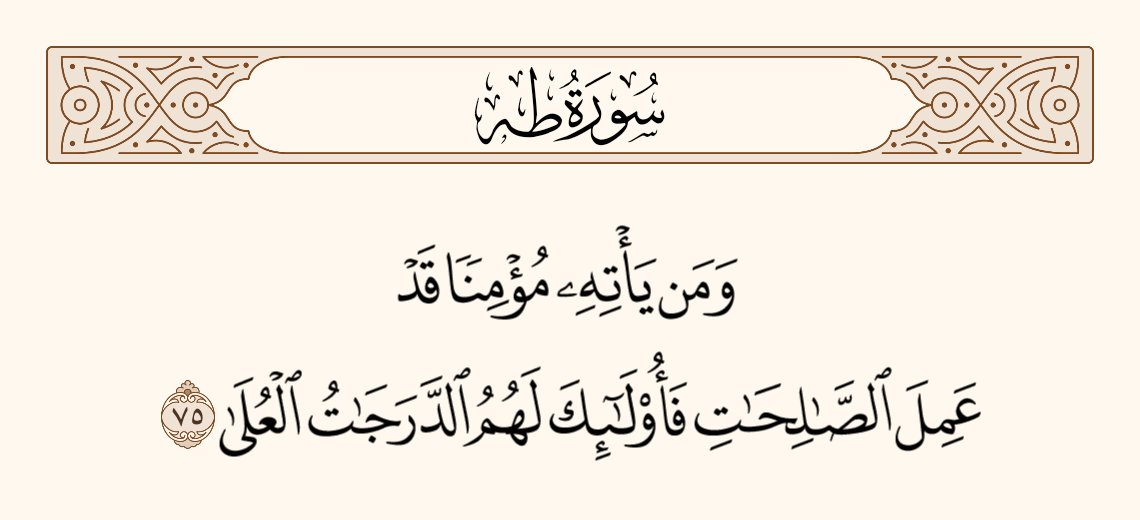 سُورَةُ طه
وَمَن يَأْتِهِۦ مُؤْمِنًا قَدْ
عَمِلَ ٱلصَّـٰلِحَـٰتِ فَأُو۟لَـٰٓئِكَ لَهُمُ ٱلدَّرَجَـٰتُ ٱلْعُلَىٰ ٧٥